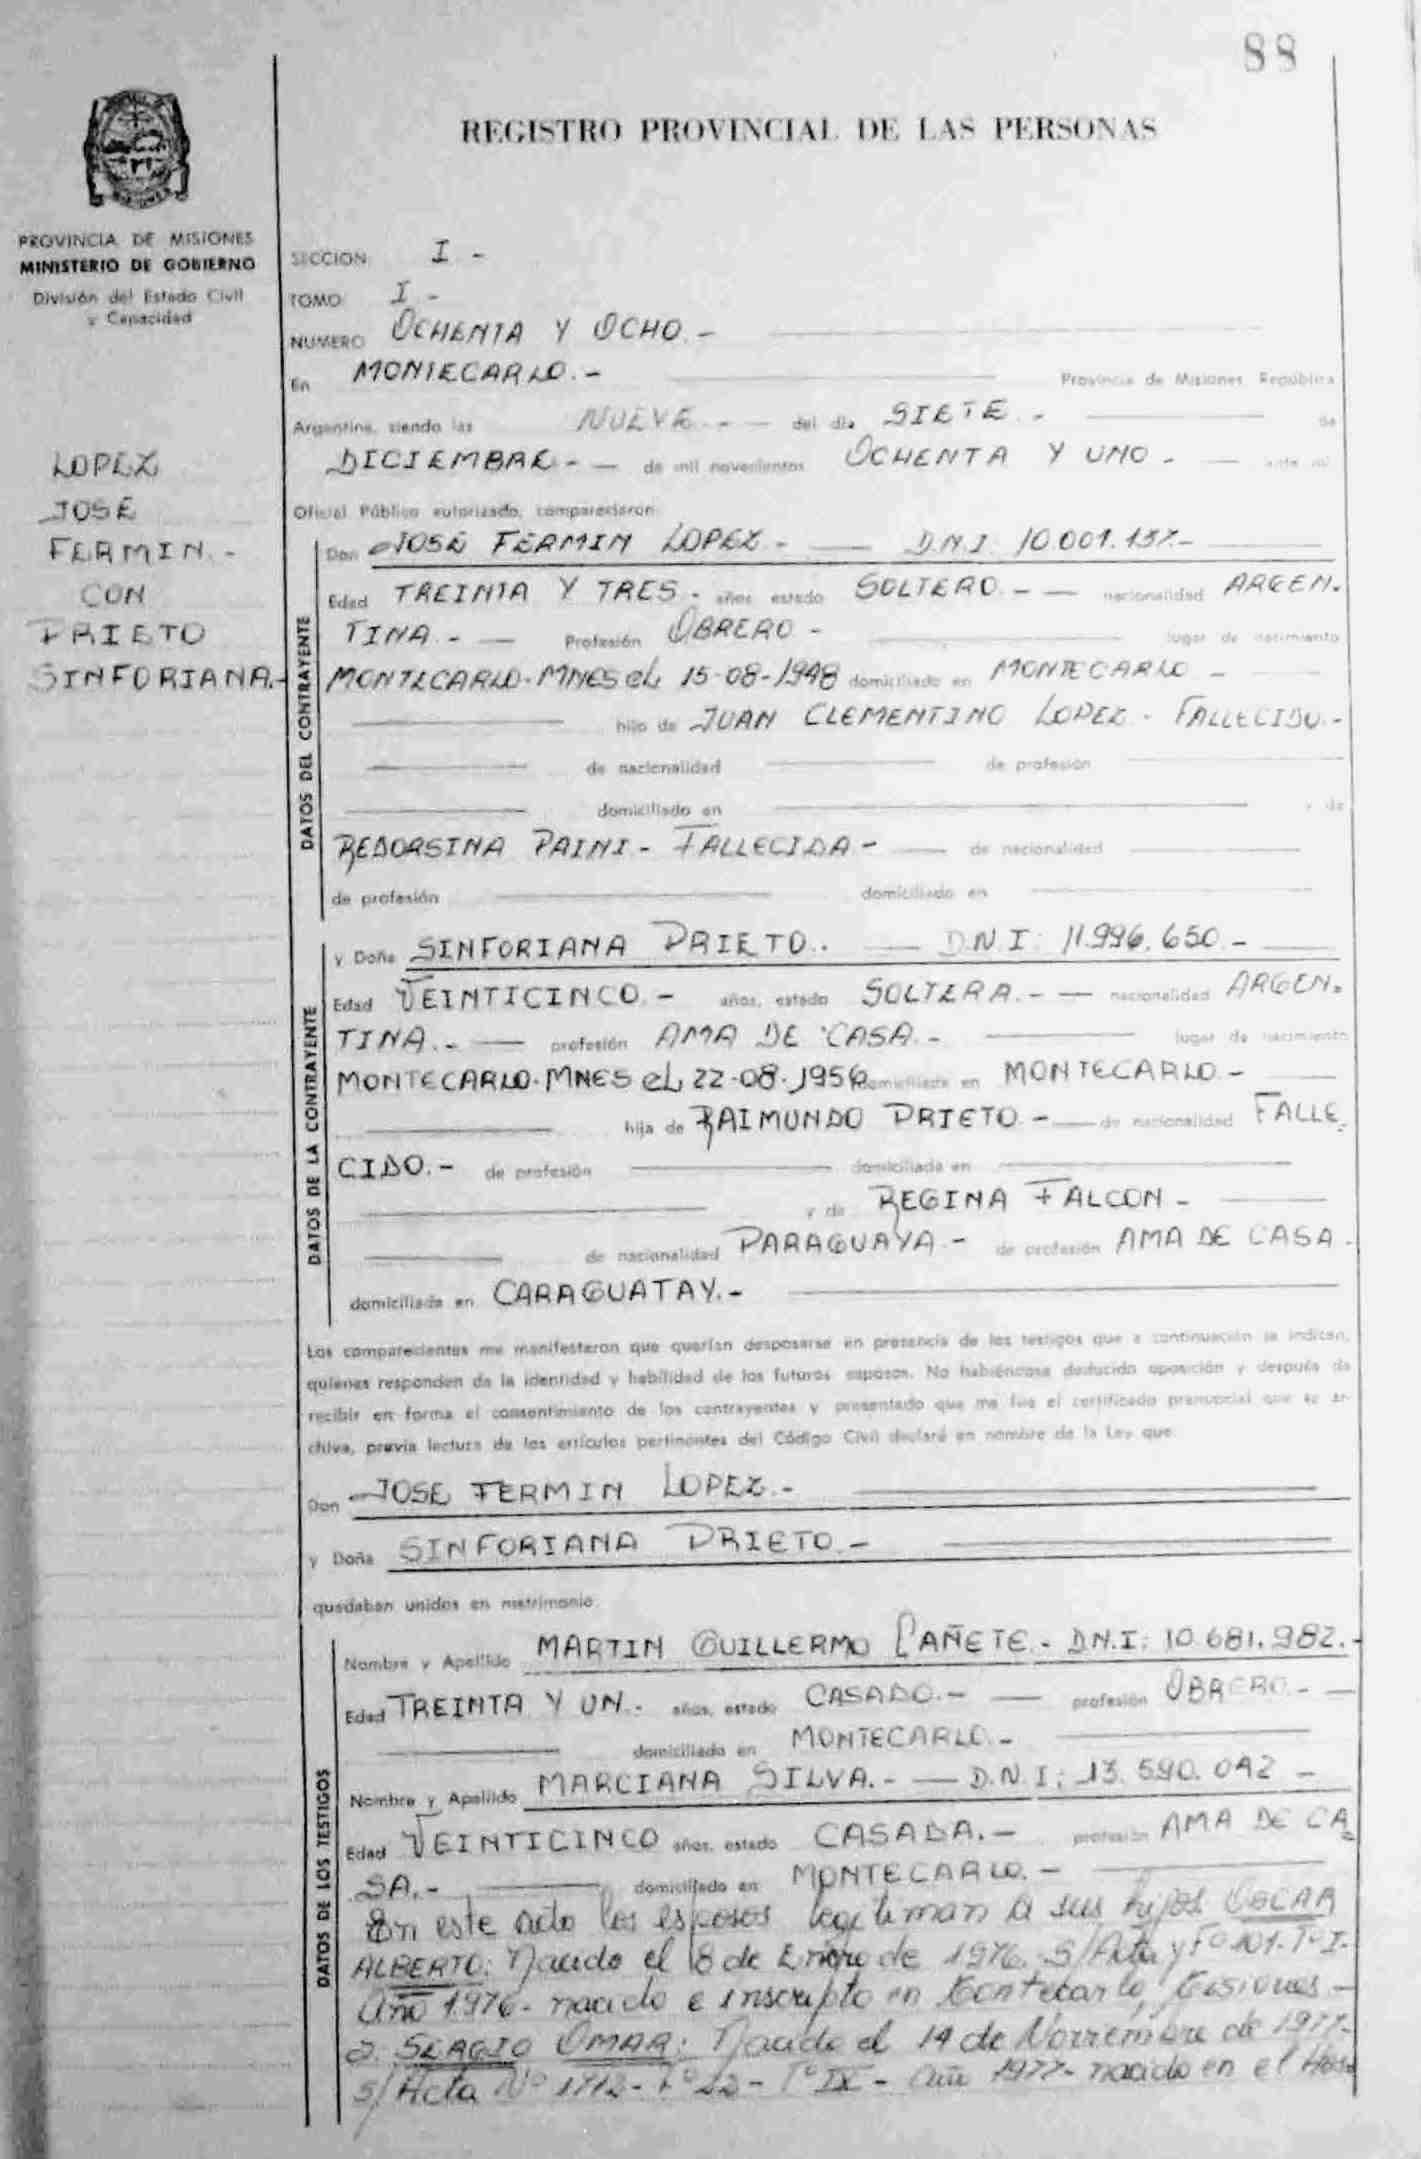 88
REGISTRO PROVINCIAL DE LAS PERSONAS
PROVINCIA DE MISIONES
MINISTERIO DE GOBIERNO
División del Estado Civil
y Capacidad
LOPEZ
JOSE
FERMIN.-
CON
PRIETO
SINFORIANA.-
SECCION I -
TOMO I -
NUMERO OCHENTA Y OCHO.-
En MONTECARLO.- Provincia de Misiones República
Argentina, siendo las NUEVE.- del día SIETE.- de
DICIEMBRE.- de mil novecientos OCHENTA Y UNO.- ante mí
Oficial Público autorizado, comparecieron:
DATOS DEL CONTRAYENTE
Don JOSE FERMIN LOPEZ.- D.N.I. 10.001.137.-
Edad TREINTA Y TRES.- años estado SOLTERO.- nacionalidad ARGEN.
TINA.- Profesión OBRERO- lugar de nacimiento
MONTECARLO-MNES EL 15-08-1948 domiciliado en MONTECARLO -
hijo de JUAN CLEMENTINO LOPEZ - FALLECIDO.-
de nacionalidad de profesión
domiciliado en y de
REDORSINA PAINI - FALLECIDA.- de nacionalidad
de profesión domiciliada en
DATOS DE LA CONTRAYENTE
y Doña SINFORIANA PRIETO.. D.N.I: 11.996.650.-
Edad VEINTICINCO.- años, estado SOLTERA.- nacionalidad ARGEN.
TINA.- profesión AMA DE CASA.- lugar de nacimiento
MONTECARLO-MNES EL 22-08-1956 domiciliada en MONTECARLO.-
hija de RAIMUNDO PRIETO.- de nacionalidad FALLE
CIDO.- de profesión domiciliado en
y de REGINA FALCON -
de nacionalidad PARAGUAYA.- de profesión AMA DE CASA.
domiciliada en CARAGUATAY.-
Los comparecientes me manifestaron que querían desposarse en presencia de los testigos que a continuación se indican,
quienes responden de la identidad y habilidad de los futuros esposos. No habiéndose deducido oposición y después de
recibir en forma el consentimiento de los contrayentes y presentado que me fue el certificado prenupcial que se ar
chiva, previa lectura de los artículos pertinentes del Código Civil declaré en nombre de la Ley que:
Don JOSE FERMIN LOPEZ.-
y Doña SINFORIANA PRIETO.-
quedaban unidos en matrimonio
DATOS DE LOS TESTIGOS
Nombre y Apellido MARTIN GUILLERMO CAÑETE.- D.N.I: 10.681.982.-
Edad TREINTA Y UN.- años, estado CASADO.- profesión OBRERO.-
domiciliado en MONTECARLO.-
Nombre y Apellido MARCIANA SILVA.- D.N.I: 13.590.042 -
Edad VEINTICINCO años, estado CASADA.- profesión AMA DE CA
SA.- domiciliado en MONTECARLO.-
En este acto los esposos legitiman a sus hijos OSCAR
ALBERTO: Nacido el 8 de Enero de 1976. S/Acta y Fº 101-Tº I-
Año 1976- nacido e inscripto en Montecarlo, Misiones -
a: SERGIO OMAR: Nacido el 14 de Noviembre de 1977-
S/Acta Nº 1712- Fº - Tº IX - Año 1977- nacido en el Hos